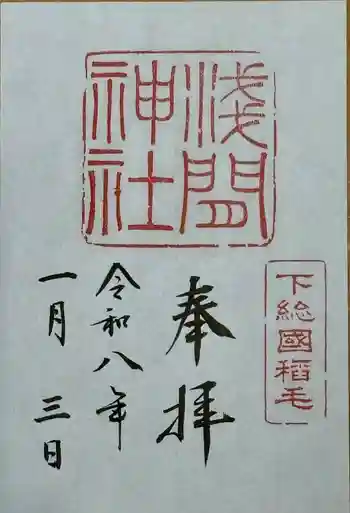 浅間
神社
下総國稲毛
奉拝
令和八年
一月三日